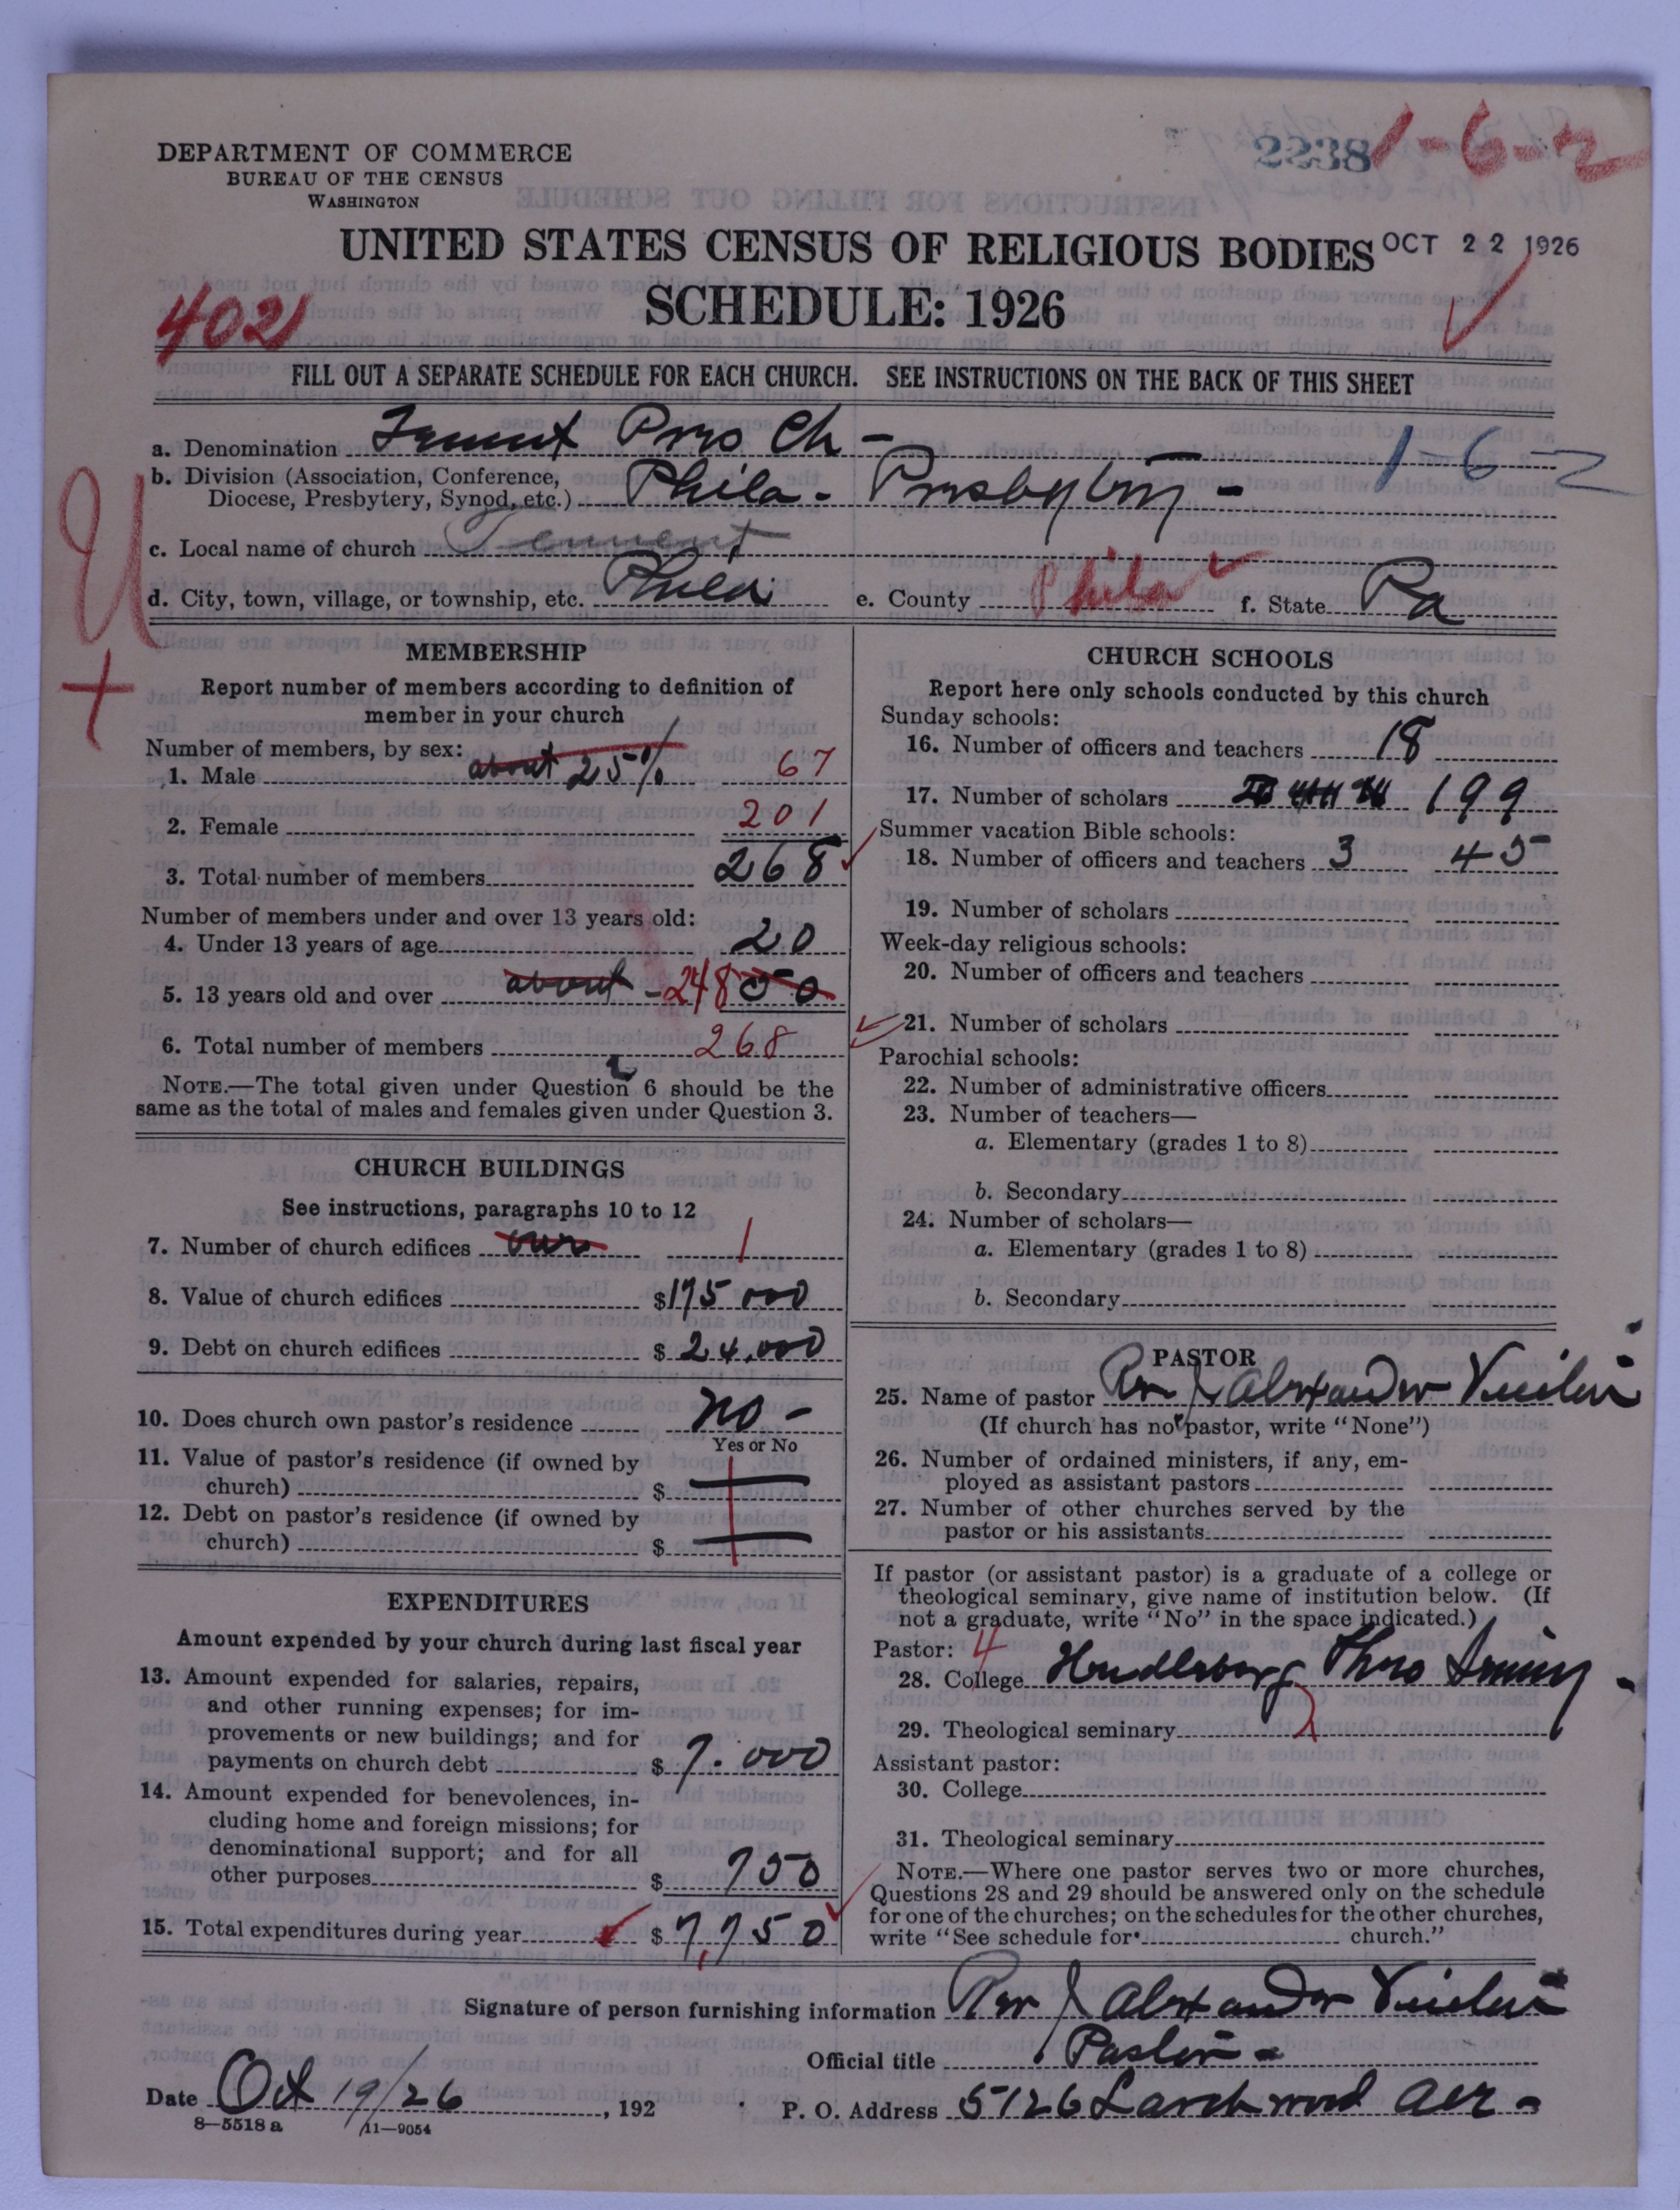 DEPARTMENT OF COMMERCE
BUREAU OF THE CENSUS
WASHINGTON
2238
1-6-2
UNITED STATES CENSUS OF RELIGIOUS BODIES
OCT 22 1926
SCHEDULE: 1926
402
FILL OUT A SEPARATE SCHEDULE FOR EACH CHURCH. SEE INSTRUCTIONS ON THE BACK OF THIS SHEET
a. Denomination Tennent Pres Ch -
1-6-2
b. Division (Association, Conference,
Diocese, Presbytery, Synod, etc.) Phila - Presbytery -
c. Local name of church Tennent
d. City, town, village, or township, etc. Phila e. County Phila f. State Pa
U
+
MEMBERSHIP
Report number of members according to definition of
member in your church
Number of members, by sex:
1. Male about 25% 67
2. Female 201
3. Total number of members 268
Number of members under and over 13 years old:
4. Under 13 years of age 20
5. 13 years old and over about - 248 50
6. Total number of members 268
NOTE.—The total given under Question 6 should be the
same as the total of males and females given under Question 3.
CHURCH BUILDINGS
See instructions, paragraphs 10 to 12
7. Number of church edifices one 1
8. Value of church edifices $175 000
9. Debt on church edifices $ 24,000
10. Does church own pastor's residence no -
Yes or No
11. Value of pastor's residence (if owned by
church) $
12. Debt on pastor's residence (if owned by
church) $
EXPENDITURES
Amount expended by your church during last fiscal year
13. Amount expended for salaries, repairs,
and other running expenses; for im-
provements or new buildings; and for
payments on church debt $ 7.000
14. Amount expended for benevolences, in-
cluding home and foreign missions; for
denominational support; and for all
other purposes $ 750
15. Total expenditures during year $ 7,750
CHURCH SCHOOLS
Report here only schools conducted by this church
Sunday schools:
16. Number of officers and teachers 18
17. Number of scholars 199
Summer vacation Bible schools:
18. Number of officers and teachers 3 45
19. Number of scholars
Week-day religious schools:
20. Number of officers and teachers
21. Number of scholars
Parochial schools:
22. Number of administrative officers
23. Number of teachers—
a. Elementary (grades 1 to 8)
b. Secondary
24. Number of scholars—
a. Elementary (grades 1 to 8)
b. Secondary
PASTOR
25. Name of pastor Rev J Alexander
(If church has no pastor, write "None")
26. Number of ordained ministers, if any, em-
ployed as assistant pastors
27. Number of other churches served by the
pastor or his assistants
If pastor (or assistant pastor) is a graduate of a college or
theological seminary, give name of institution below. (If
not a graduate, write "No" in the space indicated.)
Pastor: 4
28. College Theo
29. Theological seminary 2
Assistant pastor:
30. College
31. Theological seminary
NOTE.—Where one pastor serves two or more churches,
Questions 28 and 29 should be answered only on the schedule
for one of the churches; on the schedules for the other churches,
write "See schedule for church."
Signature of person furnishing information Rev J Alexander
Official title Pastor -
Date Oct 19/26, 192 P. O. Address 5126 Larchwood Ave -
8—5518 a 11—9054